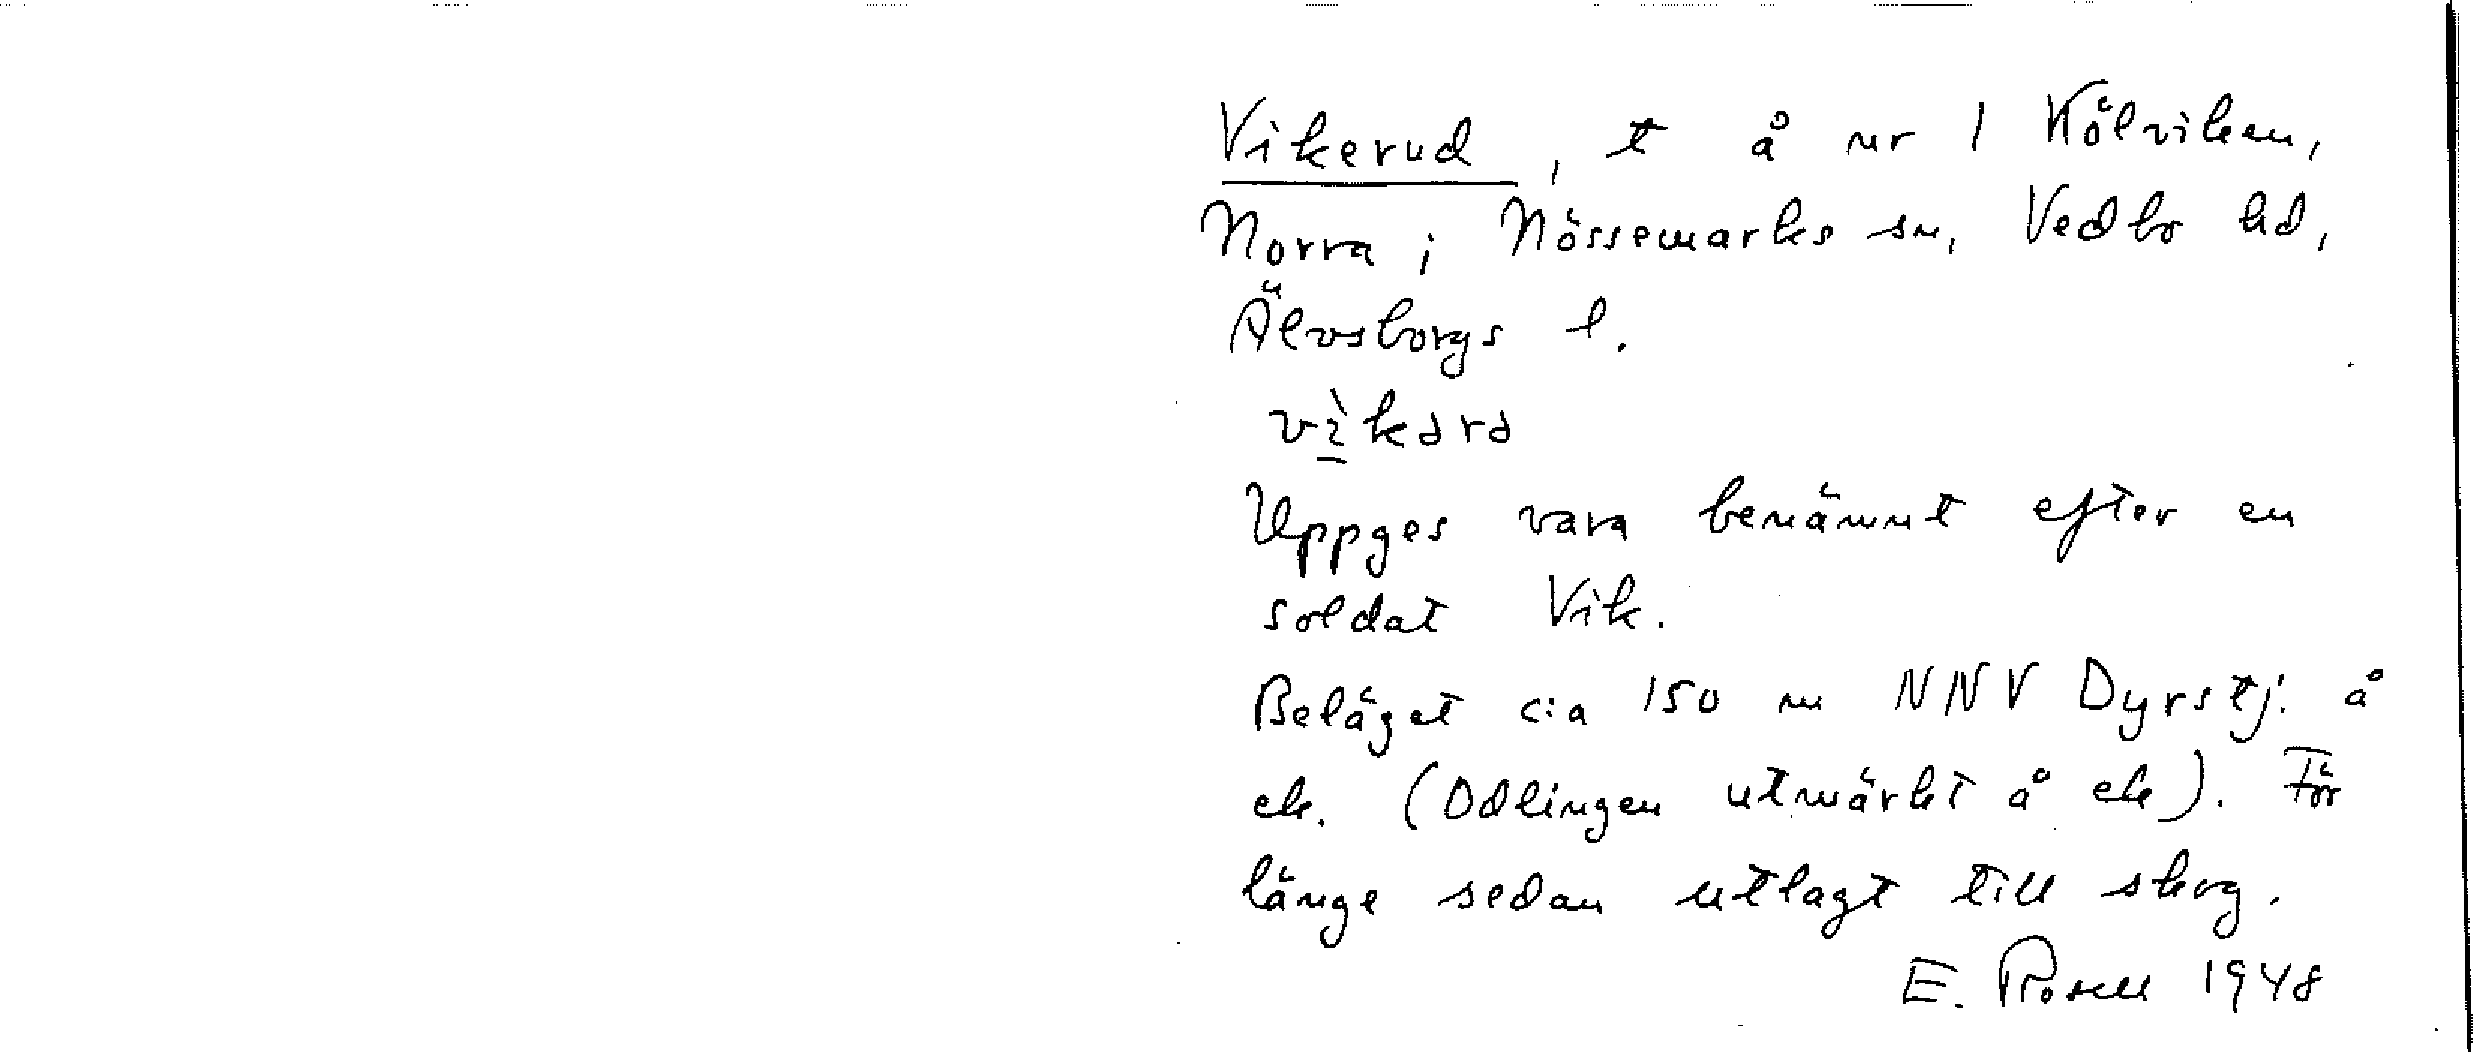 Vikerud, t å nr 1 Kölviken,
Norra i Nössemarks sn, Vedbo hd,
Älvsborgs l.
vìkərə
Uppges vara benämnt efter en
soldat Vik.
Beläget c:a 150 m NNV Dyrstj. å
ek. (Odlingen utmärkt å ek). För
länge sedan utlagt till skog.
E. Rosell 1948